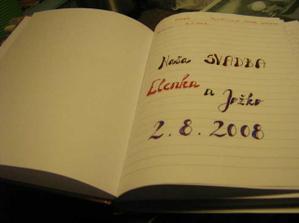 Naša SVADBA
Elenka a Jožko
2.8.2008